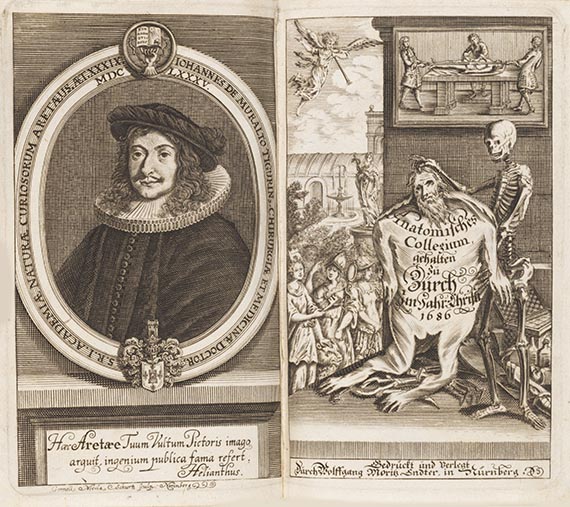 IOHANNES DE MURALTO TIGURIN. CHIRURGIÆ ET MEDICINÆ DOCTOR
S. R. I. ACADEMIÆ NATURÆ CURIOSORUM ARETÆUS. Æ: XXXIX.
MDC LXXXV.
Hæc Aretæe Tuum Vultum Pictoris imago
arguit, ingenium publica fama refert,
Helianthus.
Anatomisches
Collegium,
gehalten
zu
Zürch
Im Jahr Christi
1686
Gedrückt und verlegt
Durch Wolffgang Moritz Endter, in Nürnberg.